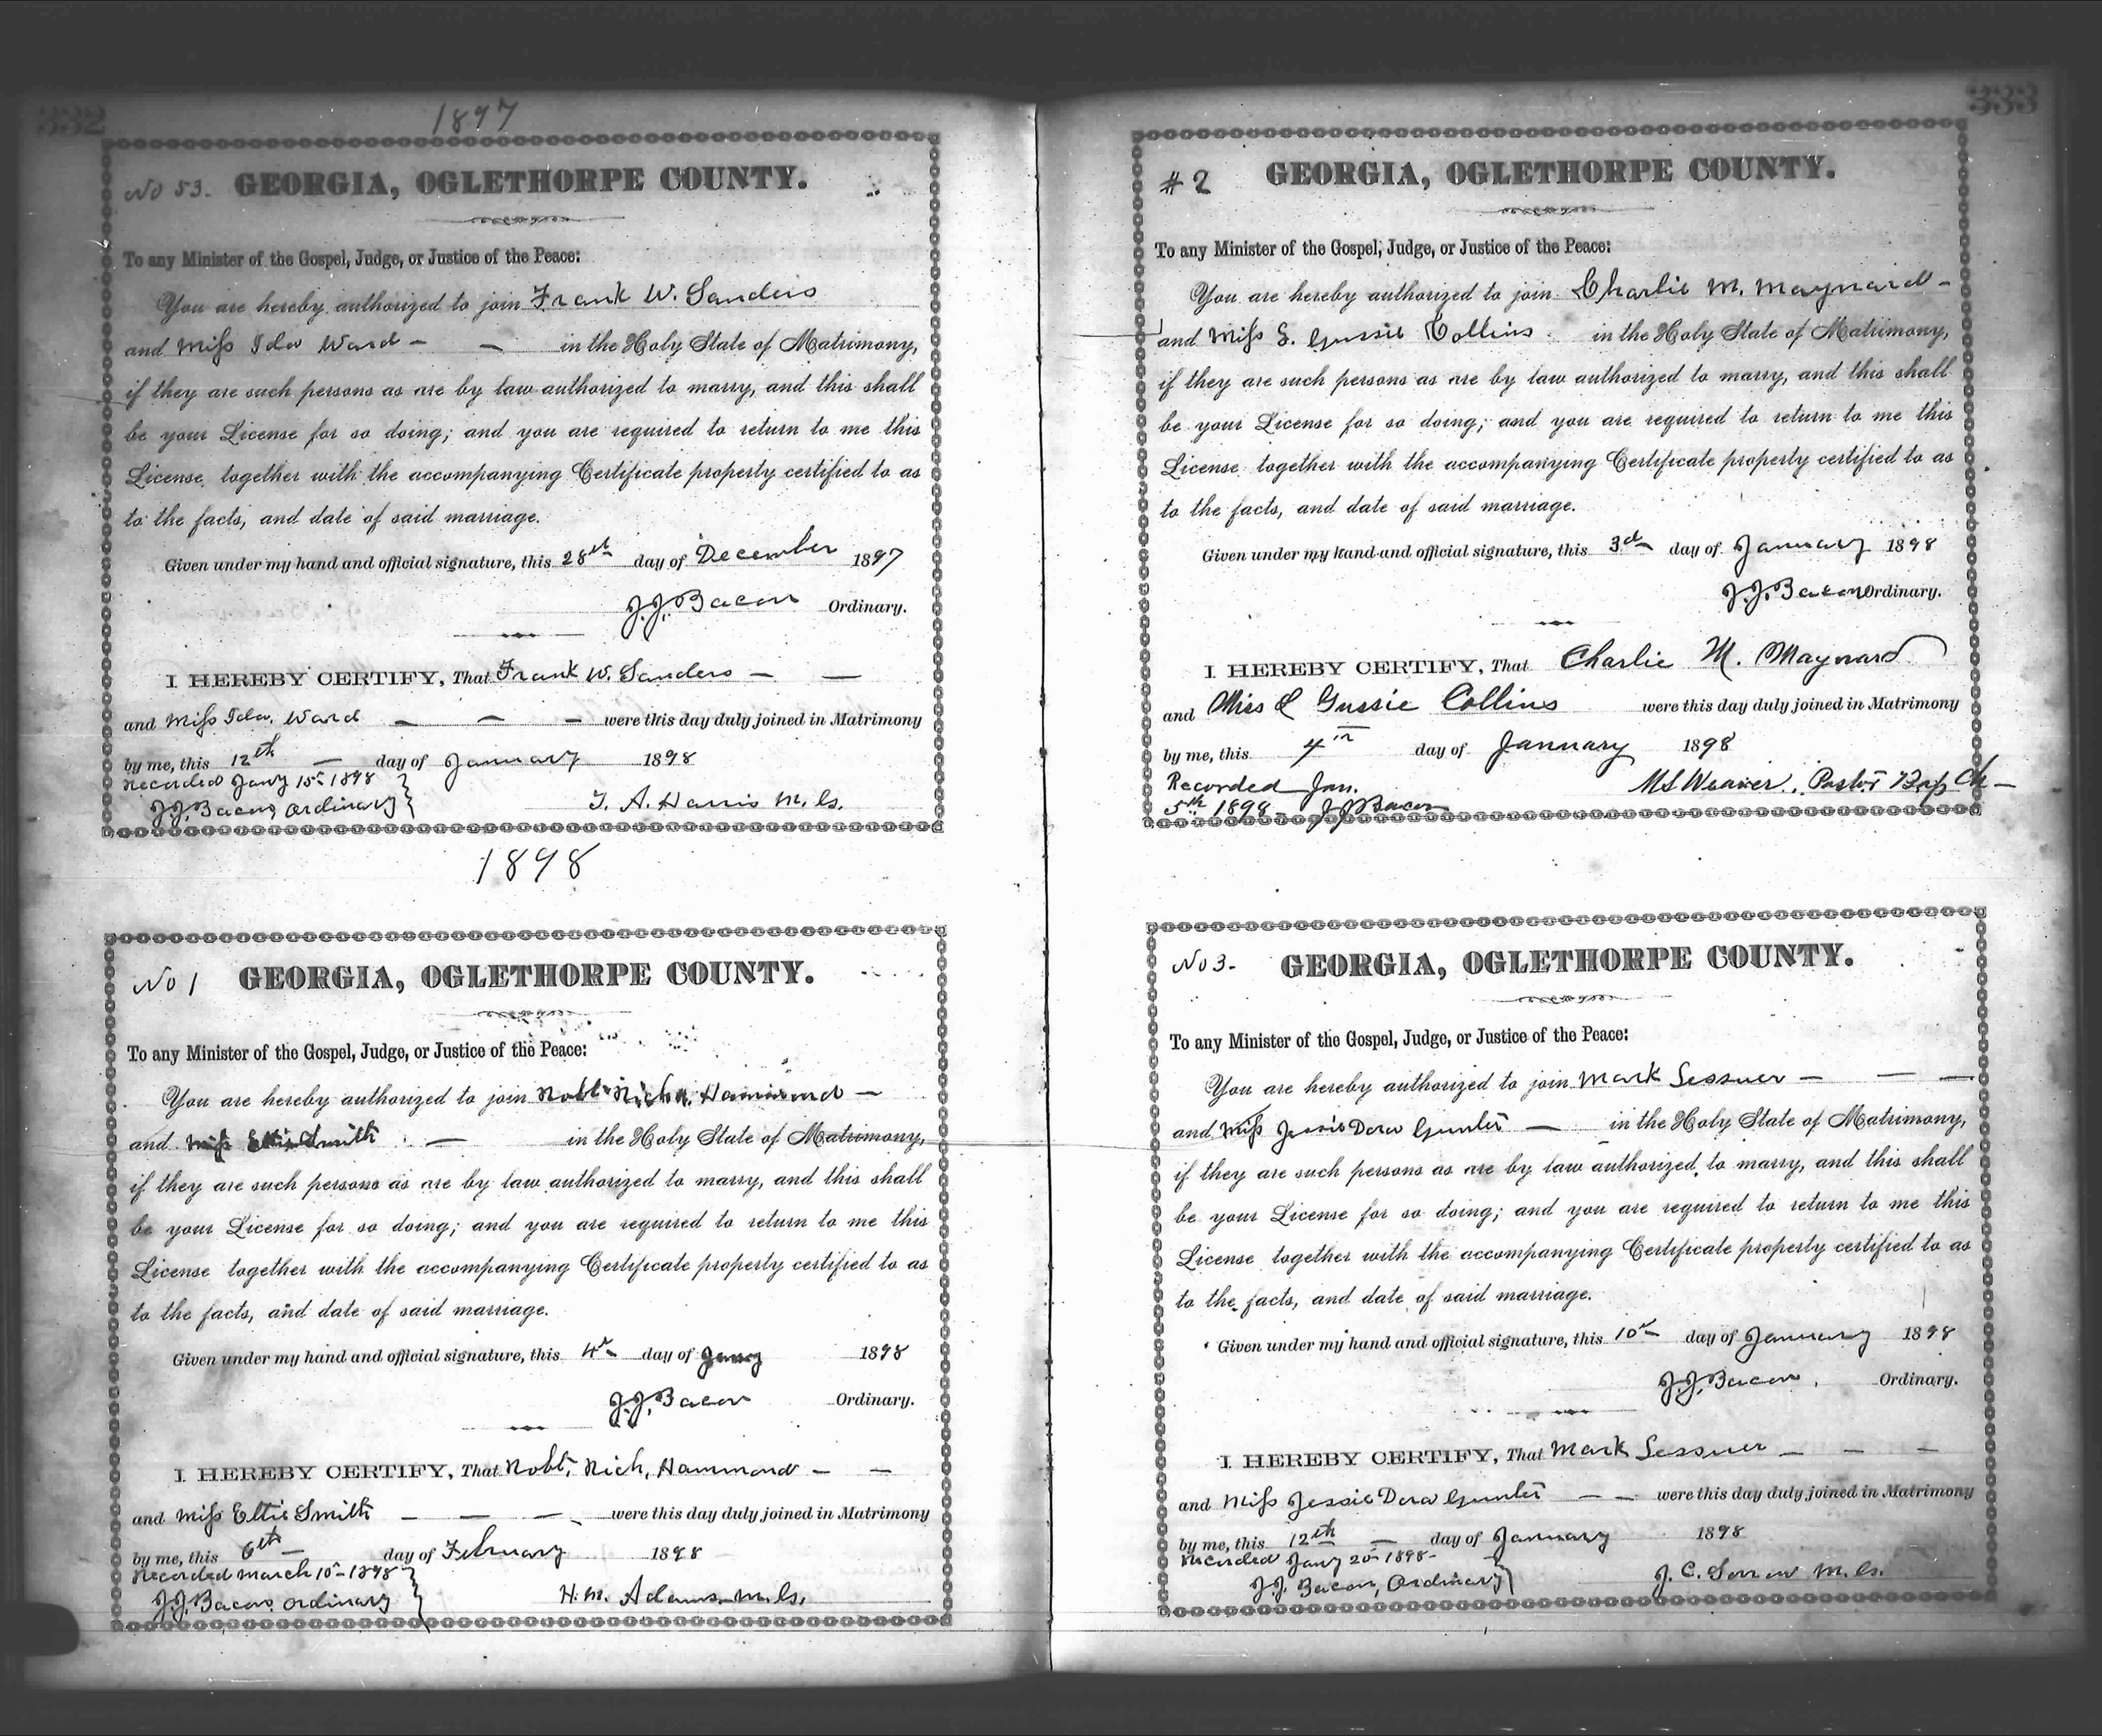 332
1897
No 53. GEORGIA, OGLETHORPE COUNTY.
To any Minister of the Gospel, Judge, or Justice of the Peace:
You are hereby authorized to join Frank W. Sanders
and Miss Ida Ward — — in the Holy State of Matrimony,
if they are such persons as are by law authorized to marry, and this shall
be your License for so doing; and you are required to return to me this
License together with the accompanying Certificate property certified to as
to the facts, and date of said marriage.
Given under my hand and official signature, this 28th day of December 1897
J.J. Bacon Ordinary.
I HEREBY CERTIFY, That Frank W. Sanders — —
and Miss Ida Ward — — — were this day duly joined in Matrimony
by me, this 12th — day of January 1898
Recorded Jany 15th 1898
J.J. Bacon, Ordinary
T. A. Harris M.G.
1898
No 1 GEORGIA, OGLETHORPE COUNTY.
To any Minister of the Gospel, Judge, or Justice of the Peace:
You are hereby authorized to join Robt. Rich. Hammond —
and Miss Smith — in the Holy State of Matrimony,
if they are such persons as are by law authorized to marry, and this shall
be your License for so doing; and you are required to return to me this
License together with the accompanying Certificate property certified to as
to the facts, and date of said marriage.
Given under my hand and official signature, this 4th day of Jany 1898
J.J. Bacon Ordinary.
I HEREBY CERTIFY, That Robt. Rich. Hammond — —
and Miss Ettie Smith — — — were this day duly joined in Matrimony
by me, this 6th — day of February 1898
Recorded March 10th 1898
J.J. Bacon, Ordinary
H. M. Adams M.G.
333
#2 GEORGIA, OGLETHORPE COUNTY.
To any Minister of the Gospel, Judge, or Justice of the Peace:
You are hereby authorized to join Charlie M. Maynard —
and Miss L. Gussie Collins in the Holy State of Matrimony,
if they are such persons as are by law authorized to marry, and this shall
be your License for so doing; and you are required to return to me this
License together with the accompanying Certificate property certified to as
to the facts, and date of said marriage.
Given under my hand and official signature, this 3d day of January 1898
J.J. Bacon Ordinary.
I HEREBY CERTIFY, That Charlie M. Maynard
and Miss L Gussie Collins were this day duly joined in Matrimony
by me, this 4th day of January 1898
Recorded Jan.
5th 1898 — J.J. Bacon
M S Weaver, Pastor Bap Ch —
No 3. GEORGIA, OGLETHORPE COUNTY.
To any Minister of the Gospel, Judge, or Justice of the Peace:
You are hereby authorized to join Mark Sessuer — — —
and Miss Jessie Dora Gunter — in the Holy State of Matrimony,
if they are such persons as are by law authorized to marry, and this shall
be your License for so doing; and you are required to return to me this
License together with the accompanying Certificate property certified to as
to the facts, and date of said marriage.
Given under my hand and official signature, this 10th day of January 1898
J.J. Bacon, Ordinary.
I HEREBY CERTIFY, That Mark Sessuer — — —
and Miss Jessie Dora Gunter — — were this day duly joined in Matrimony
by me, this 12th — day of January 1898
Recorded Jany 20th 1898 —
J.J. Bacon, Ordinary
J. C. Sorrow M.G.